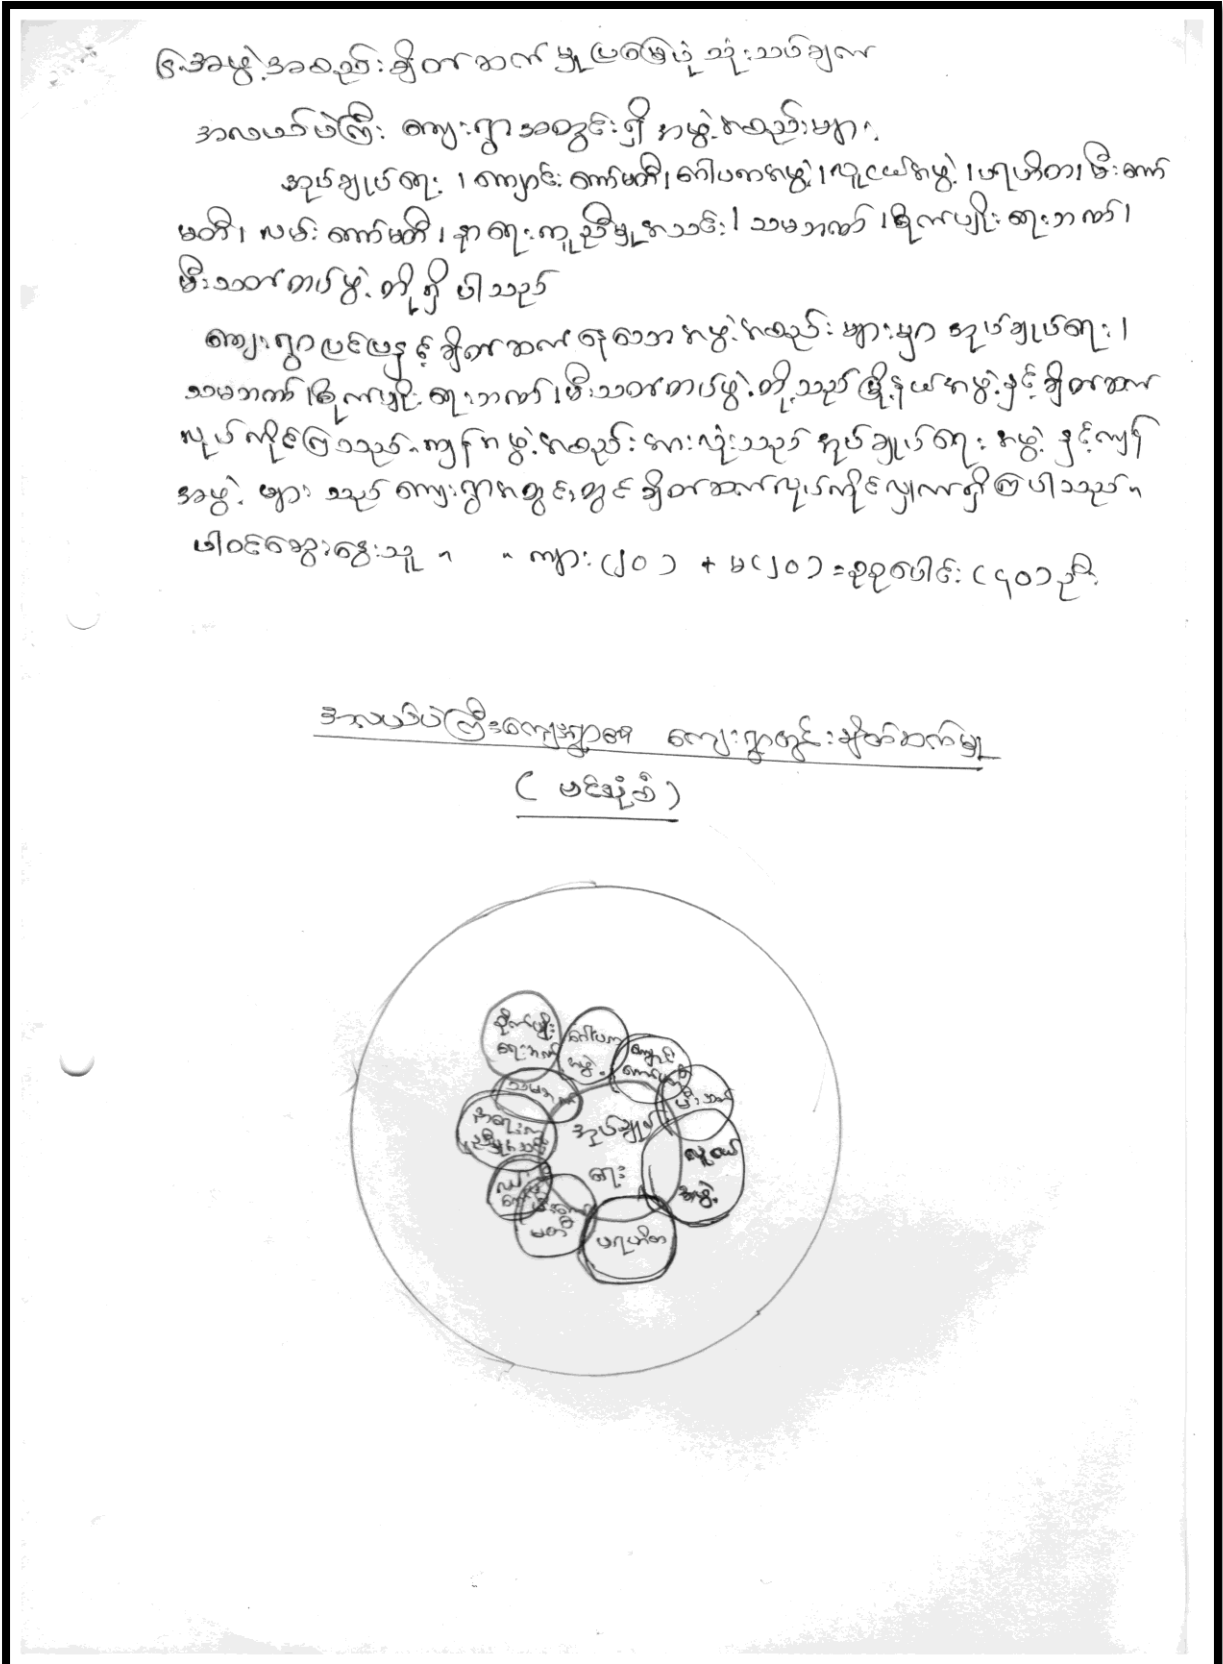 ၆။ အဖွဲ့အစည်းချိတ်ဆက်မှုပြမြေပုံသုံးသပ်ချက်
အလယ်ပဲကြီး ကျေးရွာအတွင်းရှိ အဖွဲ့အစည်းများ
အုပ်ချုပ်ရေး ၊ ကျောင်းကော်မတီ ၊ ဂေါပကအဖွဲ့ ၊ လူငယ်အဖွဲ့ ၊ ပရဟိတ ၊ မီးကော်
မတီ ၊ လမ်းကော်မတီ ၊ နာရေးကူညီမှုအသင်း ၊ သမဘဏ် ၊ စိုက်ပျိုးရေးဘဏ် ၊
မီးသတ်တပ်ဖွဲ့ တို့ရှိပါသည်
ကျေးရွာပြင်ပနှင့်ချိတ်ဆက်နေသော အဖွဲ့အစည်းများမှာ အုပ်ချုပ်ရေး ၊
သမဘဏ် ၊ စိုက်ပျိုးရေးဘဏ် ၊ မီးသတ်တပ်ဖွဲ့ တို့သည် မြို့နယ်အဖွဲ့နှင့်ချိတ်ဆက်
လုပ်ကိုင်ကြသည်။ ကျန်အဖွဲ့အစည်းအားလုံးသည် အုပ်ချုပ်ရေး အဖွဲ့ နှင့်ကျန်
အဖွဲ့ များ သည် ကျေးရွာအတွင်းတွင် ချိတ်ဆက်လုပ်ကိုင်လျှက်ရှိကြပါသည်။
ပါဝင်ဆွေးနွေးသူ ။ ။ ကျား (၂၀) + မ (၂၀) = စုစုပေါင်း (၄၀) ဦး
အလယ်ပဲကြီးကျေးရွာ၏ ကျေးရွာတွင်းချိတ်ဆက်မှု
စိုက်ပျိုး
ရေးဘဏ်
ဂေါပက
အဖွဲ့
ကျောင်း
ကော်မတီ
သမဘဏ်
မီးသတ်
နာရေးကူ
ညီမှုအသင်း
အုပ်ချုပ်
ရေး
လူငယ်
အဖွဲ့
လမ်း
ကော်မတီ
မီးကော်
မတီ
ပရဟိတ